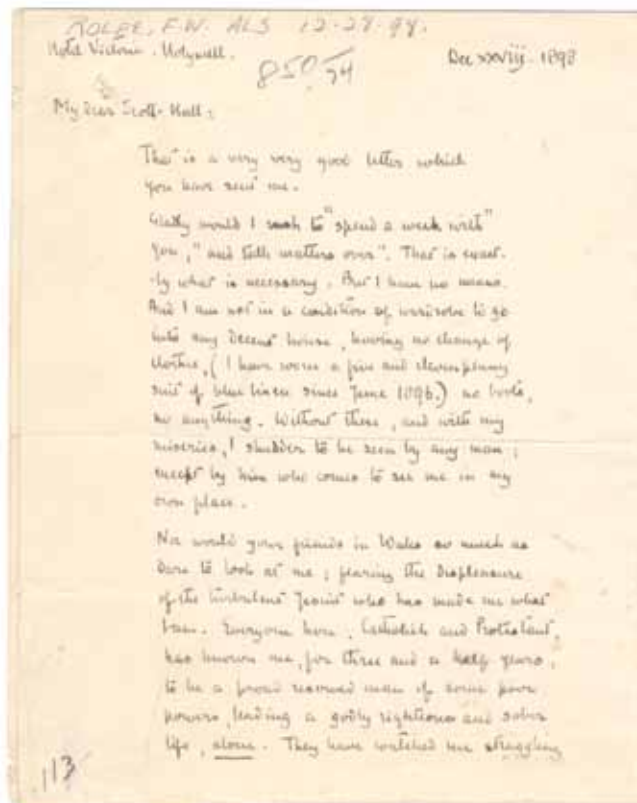 ROLFE, F.W. ALS 12-28-98.
Hotel Victoria. Holywell.
Dec xxviij. 1898
850/54
My dear Scott-Hall:
That is a very very good letter which
you have sent me.
Gladly would I rush to "spend a week with"
you," and talk matters over". That is exact-
ly what is necessary. But I have no means.
And I am not in a condition of wardrobe to go
into any decent house, having no change of
clothes, (I have worn a five and elevenpenny
suit of blue linen since June 1896.) no boots,
no anything. Without these, and with my
miseries, I shudder to be seen by any man;
except by him who comes to see me in my
own place.
Nor would your friends in Wales so much as
dare to look at me; fearing the displeasure
of the turbulent Jesuit who has made me what
I am. Everyone here, Catholick and Protestant,
has known me, for three and a half years,
to be a proud reserved man of some poor
powers, leading a godly righteous and sober
life, alone. They have watched me struggling
113